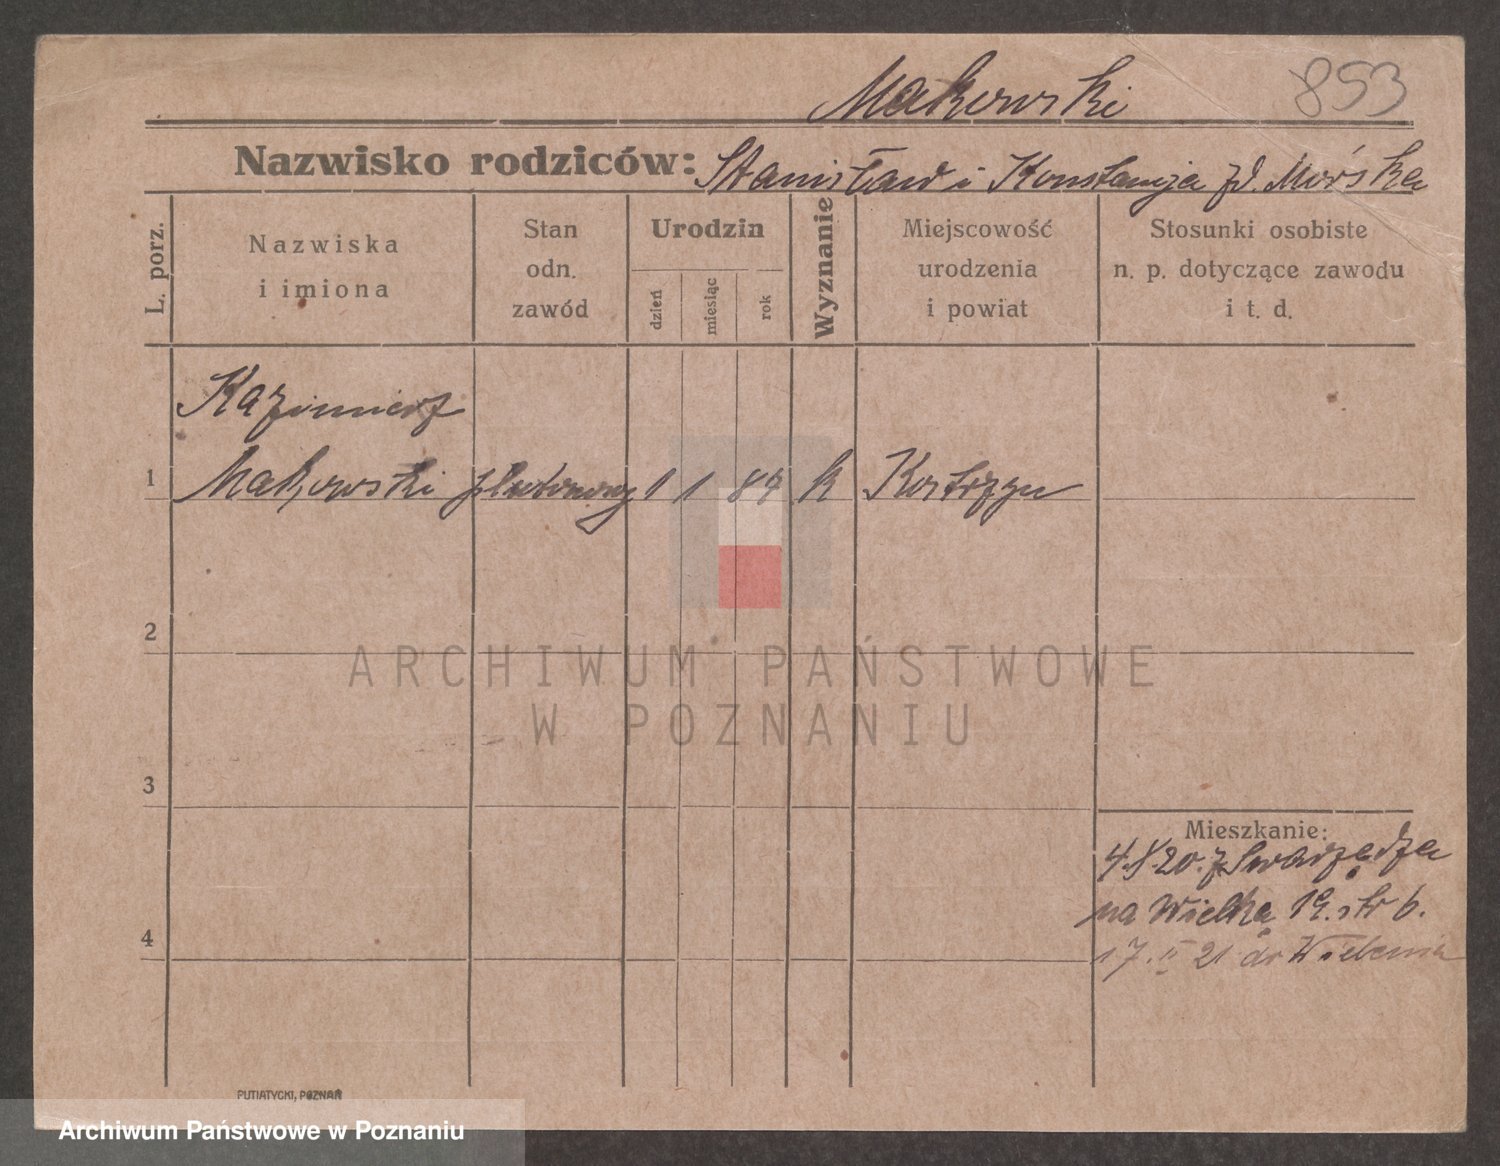 Makowski
853
Nazwisko rodziców: Stanisław i Konstancja zd. Mórska
L. porz.
Nazwiska
i imiona
Stan
odn.
zawód
Urodzin
dzień
miesiąc
rok
Wyznanie
Miejscowość
urodzenia
i powiat
Stosunki osobiste
n. p. dotyczące zawodu
i t. d.
Kazimierz
1 Makowski plutonowy 1 1 87 k Kostrzyn
2
ARCHIWUM PAŃSTWOWE
W POZNANIU
3
Mieszkanie:
4.X 20. z Swarzędza
na Wielką 19. str 6.
4
17. II 21 do
PUTIATYCKI, POZNAŃ
Archiwum Państwowe w Poznaniu